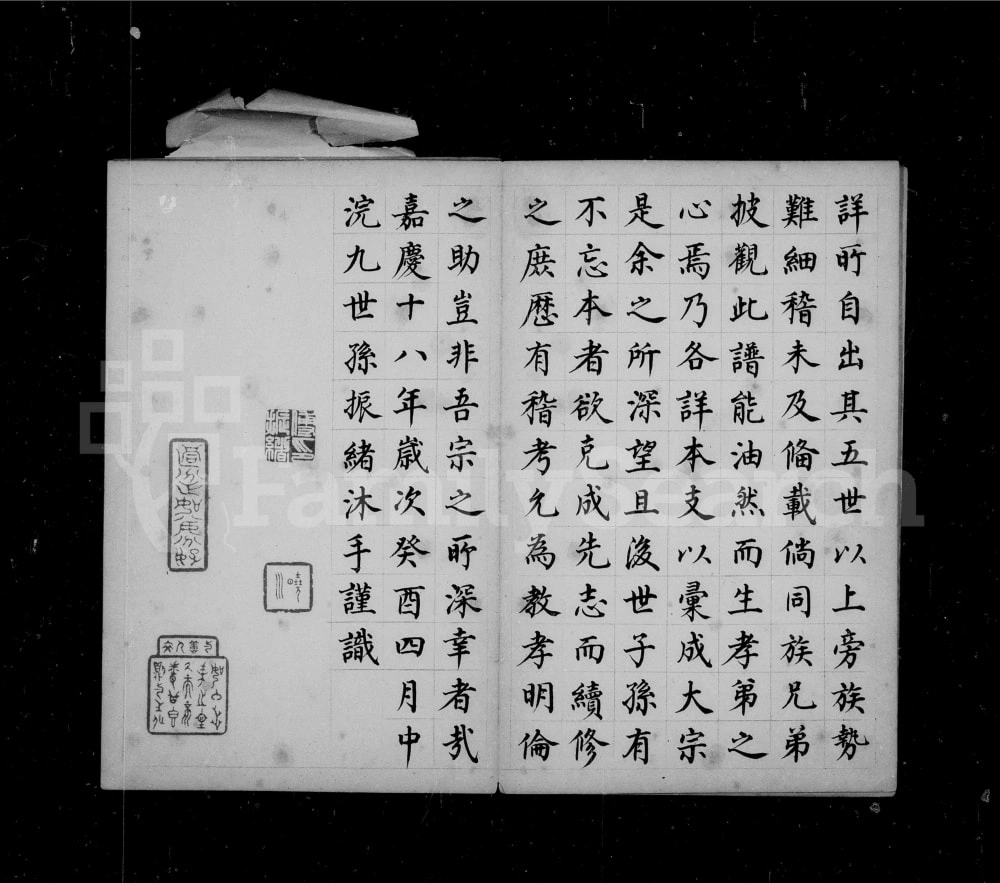 詳所自出其五世以上旁族勢
難細稽未及偹載倘同族兄弟
披觀此譜能油然而生孝弟之
心焉乃各詳本支以彙成大宗
是余之所深望且後世子孫有
不忘本者欲克成先志而續修
之庶歷有稽考允為教孝明倫
之助豈非吾宗之所深幸者哉
嘉慶十八年歲次癸酉四月中
浣九世孫振緒沐手謹識
FamilySearch